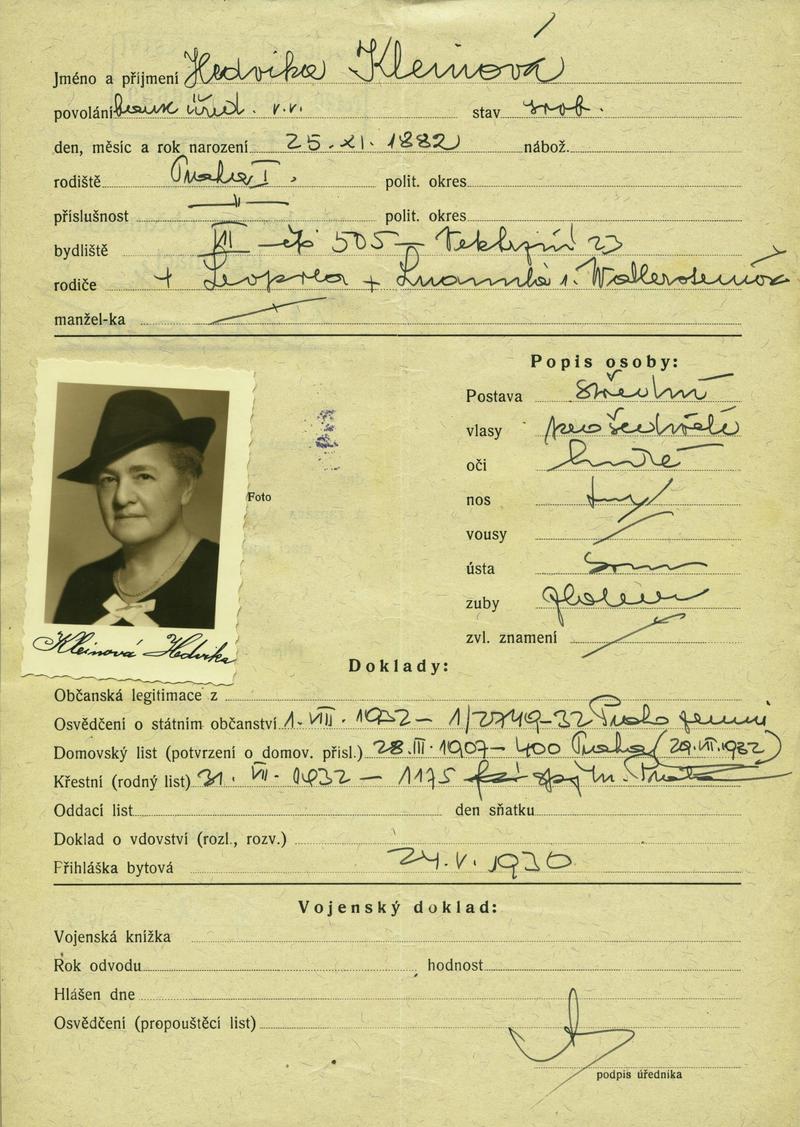 Jméno a příjmení Hedvika Kleinová
povolání bank. úřed. v.v. stav svob.
den, měsíc a rok narození 25. XI. 1882 nábož.
rodiště Praha I. polit. okres
příslušnost —"— polit. okres
bydliště VII čp 505 — 23
rodiče + Leopold +
manžel-ka
Popis osoby:
Postava střední
vlasy prošedivělé
oči hnědé
nos
vousy
ústa
zuby
zvl. znamení
Foto
Kleinová Hedvika
Doklady:
Občanská legitimace z
Osvědčení o státním občanství 1. VII. 1932 — 1/2749-32 Praha
Domovský list (potvrzení o domov. přísl.) 28. III. 1907 — 400 Praha (29. VII. 1932)
Křestní (rodný list) 31. VII. 1932 — 1175
Oddací list den sňatku
Doklad o vdovství (rozl., rozv.)
Přihláška bytová 24. V. 1930
Vojenský doklad:
Vojenská knížka
Rok odvodu hodnost
Hlášen dne
Osvědčení (propouštěcí list)
podpis úředníka